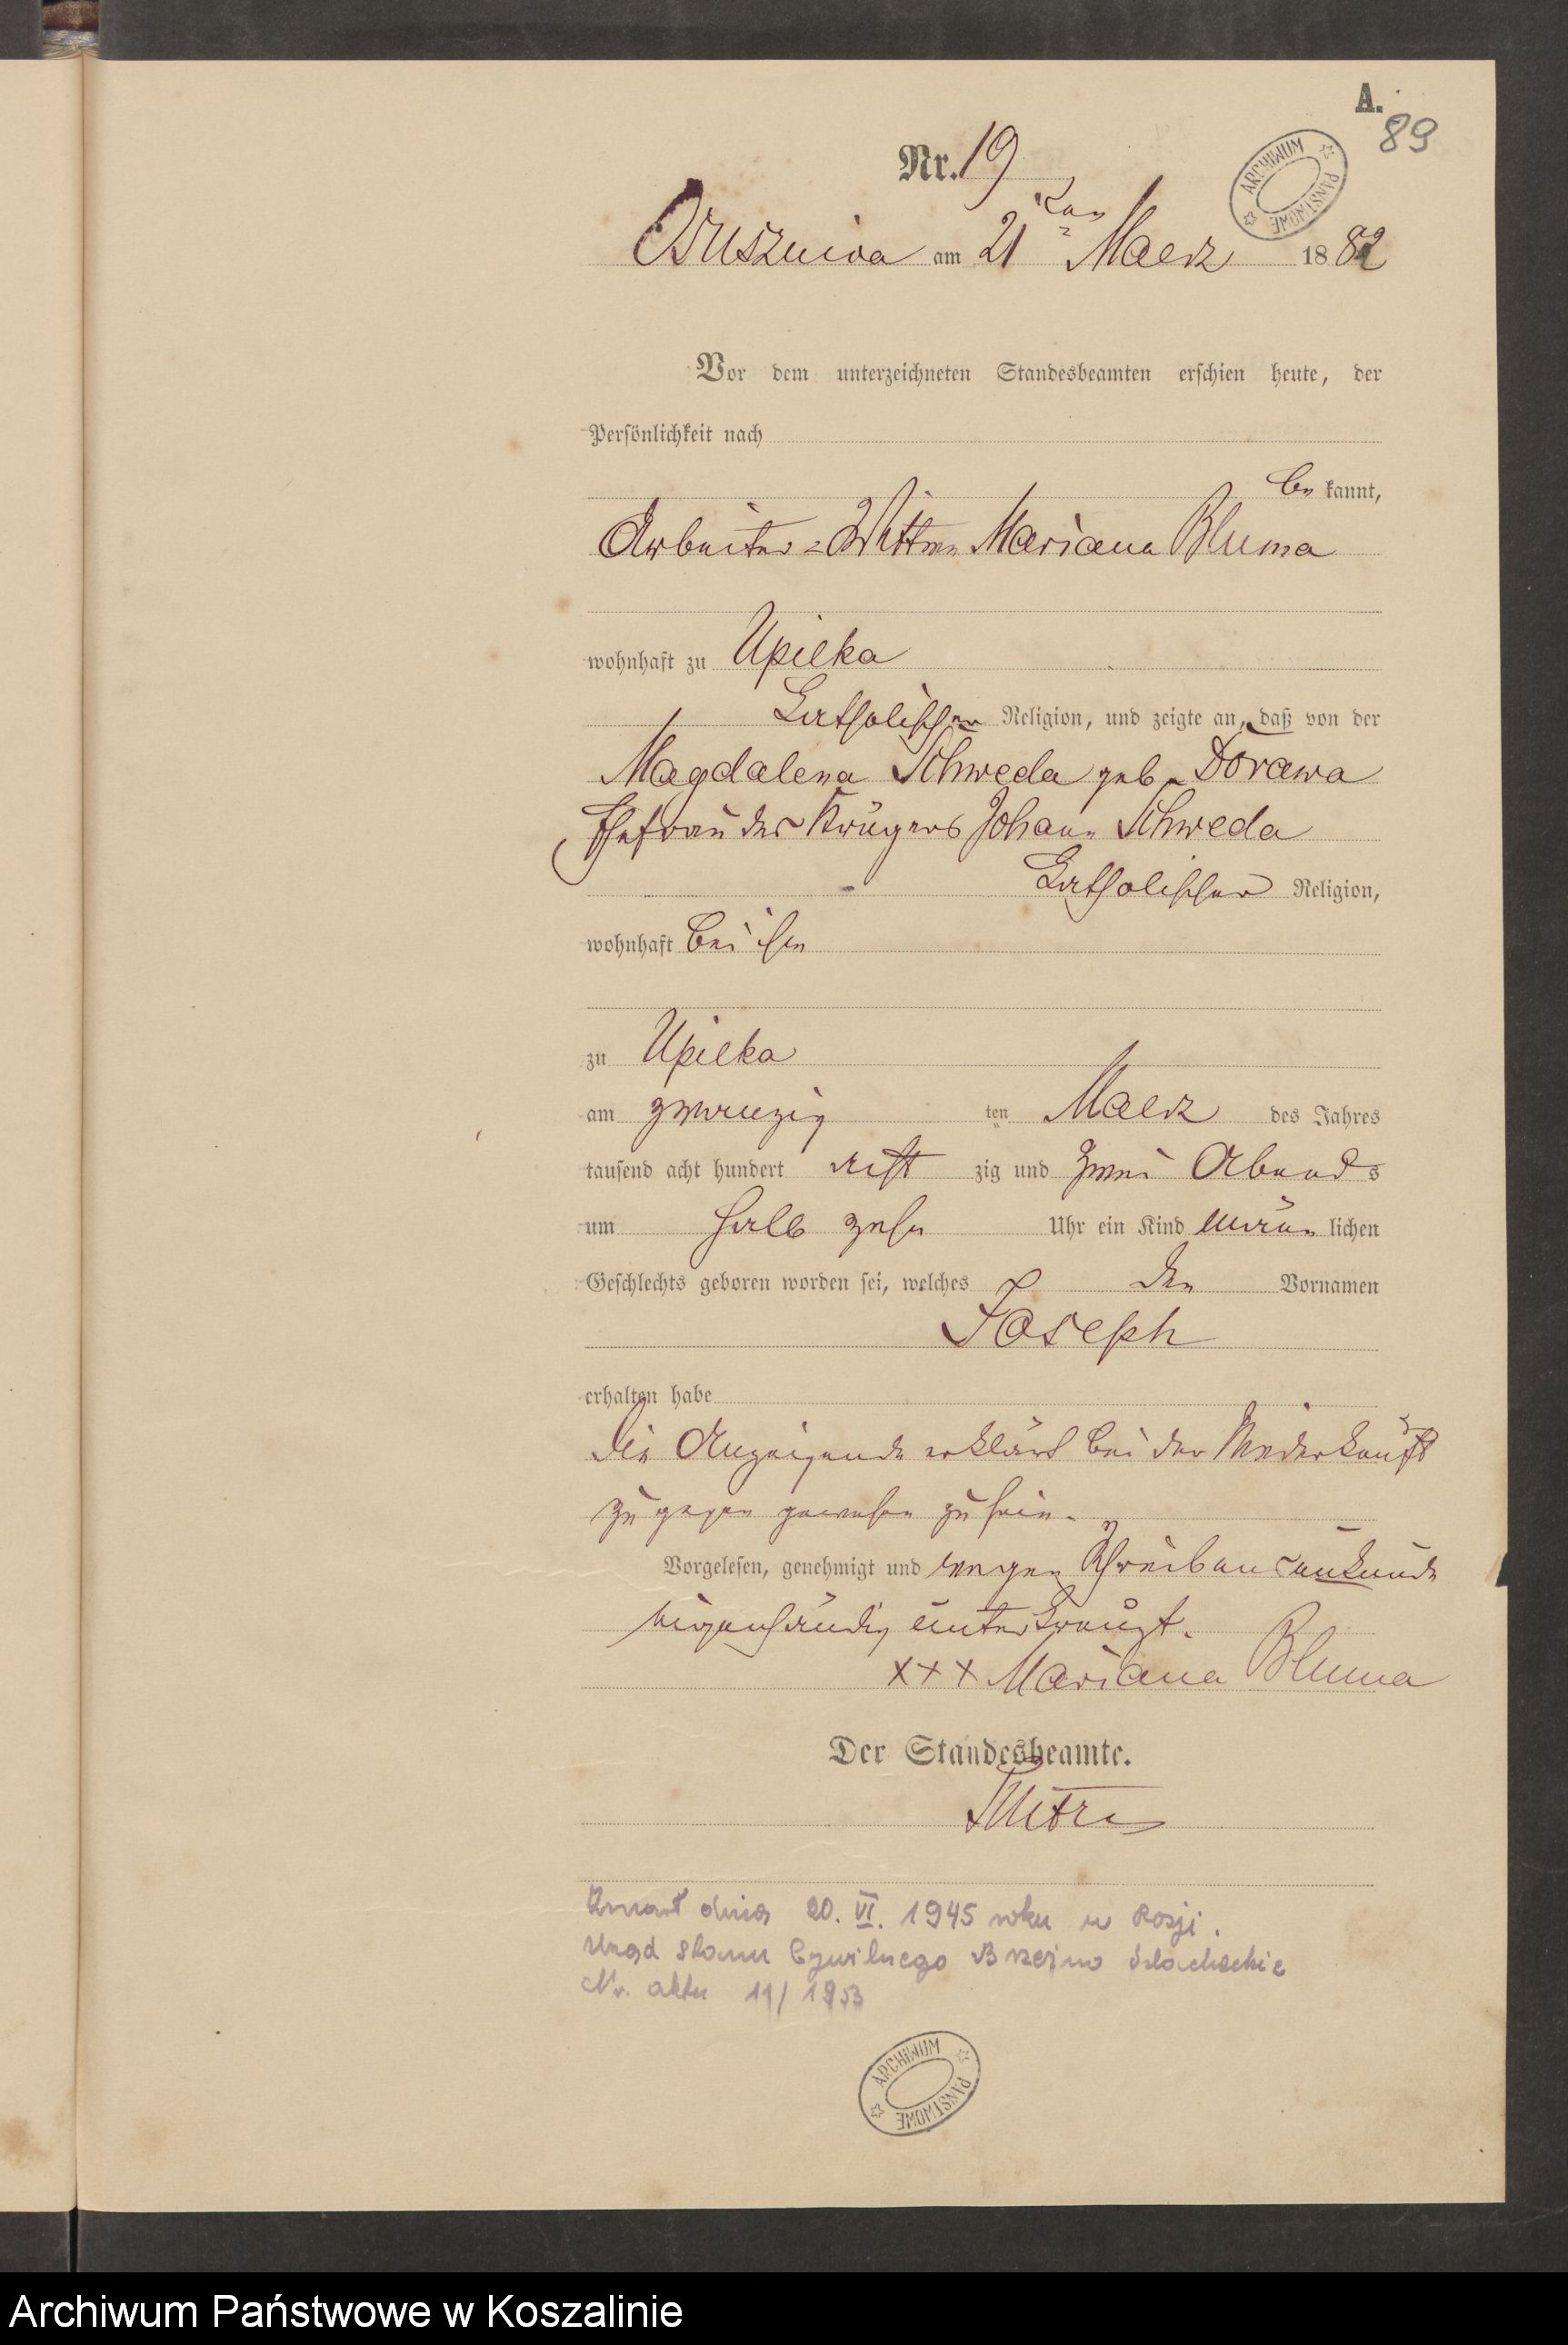 A.
89
Nr. 19
ARCHIWUM PAŃSTWOWE
am 21ten Maerz 1882
Vor dem unterzeichneten Standesbeamten erschien heute, der
Persönlichkeit nach
be kannt,
Arbeiter-Wittwe Mariana Bluma
wohnhaft zu Upilka
katholischer Religion, und zeigte an, daß von der
Magdalena Schweda geb. Dorawa
Ehefrau des Krügers Johann Schweda
katholischer Religion,
wohnhaft bei ihm
zu Upilka
am zwanzig ten Maerz des Jahres
tausend acht hundert acht zig und zwei Abends
um halb zehn Uhr ein Kind männ lichen
Geschlechts geboren worden sei, welches den Vornamen
Joseph
erhalten habe
die Anzeigende erklärt bei der Niederkunft
zugegen gewesen zu sein.
Vorgelesen, genehmigt und wegen Schreibensunkunde
eigenhändig unterkreuzt.
xxx Mariana Bluma
Der Standesbeamte.
Zmarł dnia 20. VI. 1945 roku w Rosji.
Urząd Stanu Cywilnego Brzeźno Szlacheckie
Nr. aktu 11/1953
ARCHIWUM PAŃSTWOWE
Archiwum Państwowe w Koszalinie